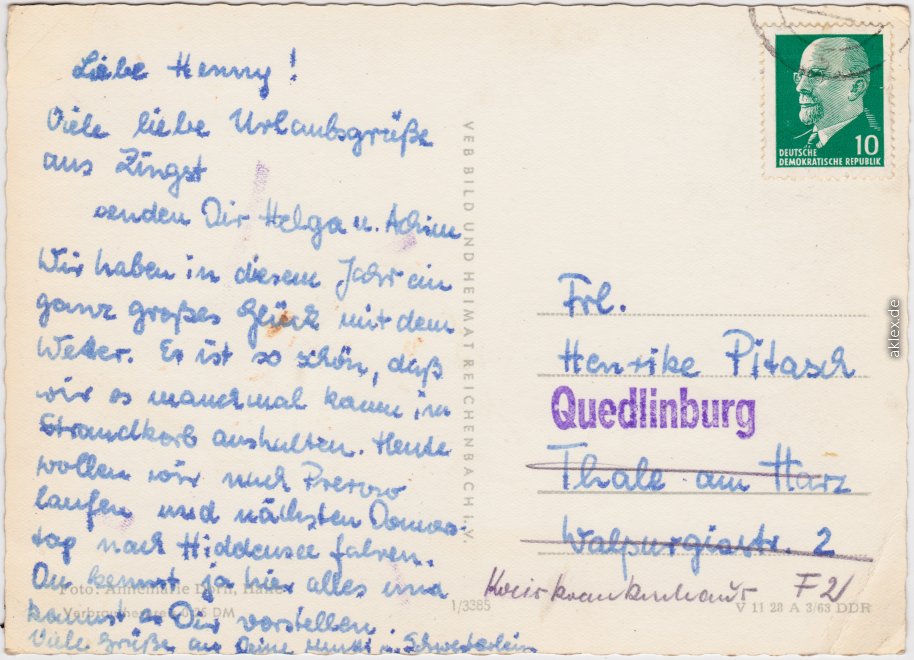 Liebe Henny!
Viele liebe Urlaubsgrüße
aus Zingst
senden Dir Helga u. Achim
Wir haben in diesem Jahr ein
ganz großes Glück mit dem
Wetter. Es ist so schön, daß
wir es manchmal kaum im
Strandkorb aushalten. Heute
wollen wir nach Prerow
laufen und nächsten Donners-
tag nach Hiddensee fahren.
Du kennst ja hier alles und
kannst es Dir vorstellen.
Viele Grüße an Deine Mutti u. Schwesterlein
Foto: Annemarie Dorn, Halle
Verbraucherpreis 0,25 DM
VEB BILD UND HEIMAT REICHENBACH I. V.
1/3385
DEUTSCHE
DEMOKRATISCHE REPUBLIK
10
Frl.
Henrike Pitasch
Quedlinburg
Thale am Harz
Walpurgisstr. 2
Kreiskrankenhaus F 21
V 11 28 A 3/63 DDR
aklex.de